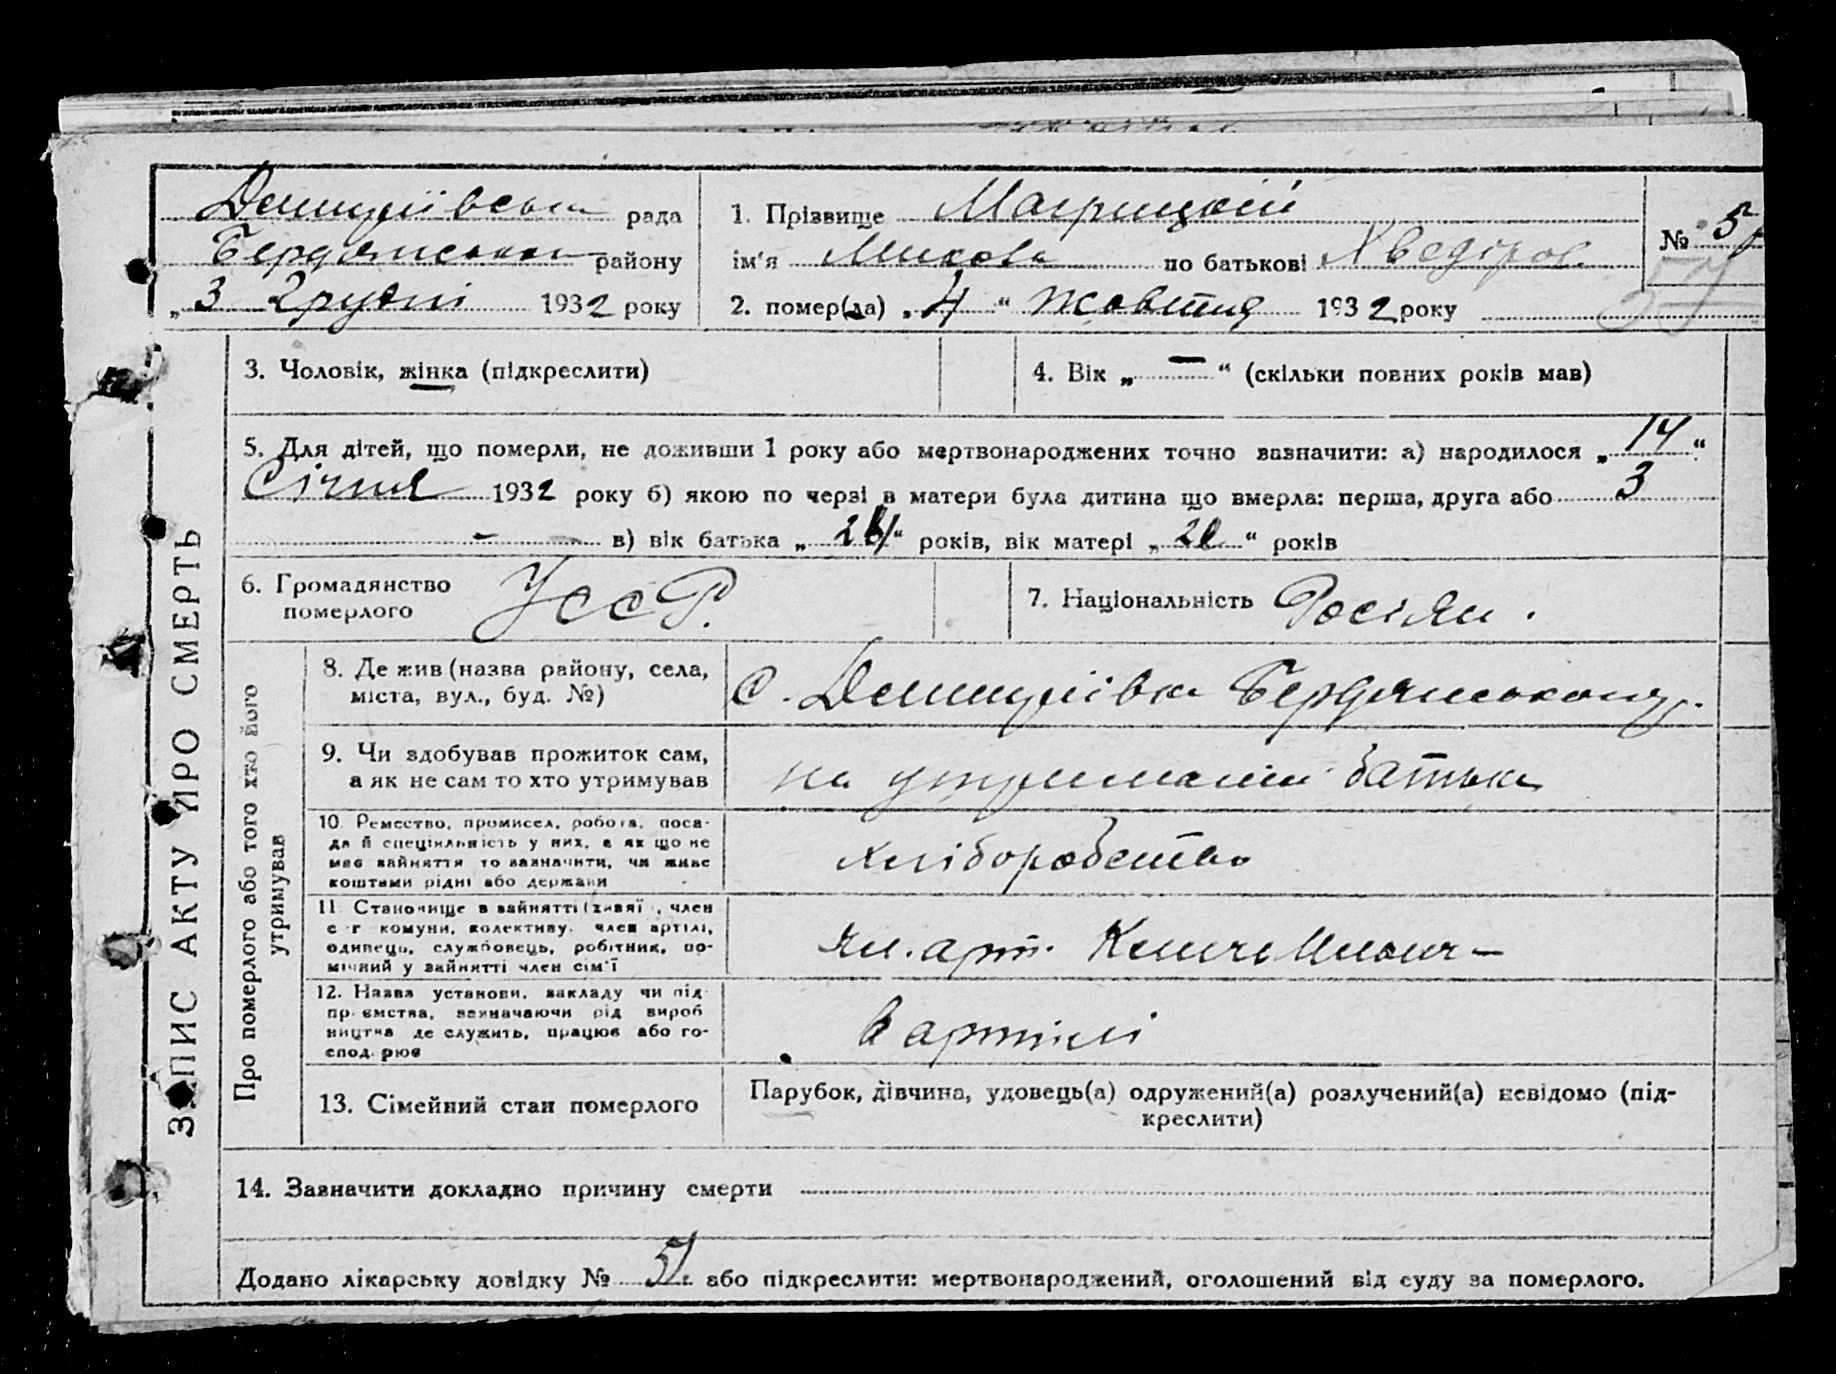 рада
району
„3 Грудні 1932 року
1. Прізвище
ім'я Микола по батькові Хведоров.
2. помер(ла) „4“ Жовтня 1932 року
№ 5
ЗАПИС АКТУ ПРО СМЕРТЬ
3. Чоловік, жінка (підкреслити)
4. Вік „ — “ (скільки повних років мав)
5. Для дітей, що померли, не доживши 1 року або мертвонароджених точно зазначити: а) народилося „14“
Січня 1932 року б) якою по черзі в матери була дитина що вмерла: перша, друга або 3
в) вік батька „ “ років, вік матері „ “ років
6. Громадянство
померлого
УССР.
7. Національність Росіян.
Про померлого або того хто його
утримував
8. Де жив (назва району, села,
міста, вул., буд. №)
9. Чи здобував прожиток сам,
а як не сам то хто утримував
на утриманні батька
10. Ремество, промисел, робота, поса-
да й спеціяльність у них, а як що не
має зайняття то зазначити, чи живе
коштами рідні або держави
хліборобство
11. Становище в зайнятті (хазяї, член
с-г комуни, колективу, член артілі,
одинець, службовець, робітник, по-
мічний у зайнятті член сім'ї
чл. арт.
12. Назва установи, закладу чи під-
приємства, зазначаючи рід вироб
ництва де служить, працює або го-
сподарює
в артілі
13. Сімейний стан померлого
Парубок, дівчина, удовець(а) одружений(а) розлучений(а) невідомо (під-
креслити)
14. Зазначити докладно причину смерти
Додано лікарську довідку № або підкреслити: мертвонароджений, оголошений від суду за померлого.